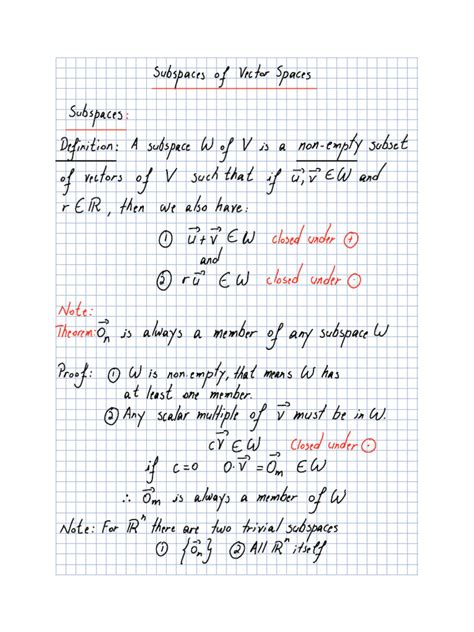 Subspaces of Vector Spaces
Subspaces:
Definition: A subspace W of V is a non-empty subset
of vectors of V such that if u⃗, v⃗ ∈ W and
r ∈ ℝ, then we also have:
① u⃗+v⃗ ∈ W closed under ⊕
and
② r u⃗ ∈ W closed under ⊙
Note:
Theorem: 0⃗ₙ is always a member of any subspace W
Proof: ① W is non-empty, that means W has
at least one member.
② Any scalar multiple of v⃗ must be in W.
cv⃗ ∈ W Closed under ⊙
if c=0 0·v⃗ = 0⃗ₘ ∈ W
∴ 0⃗ₘ is always a member of W
Note: For ℝⁿ there are two trivial subspaces
① {0⃗ₙ} ② All ℝⁿ itself